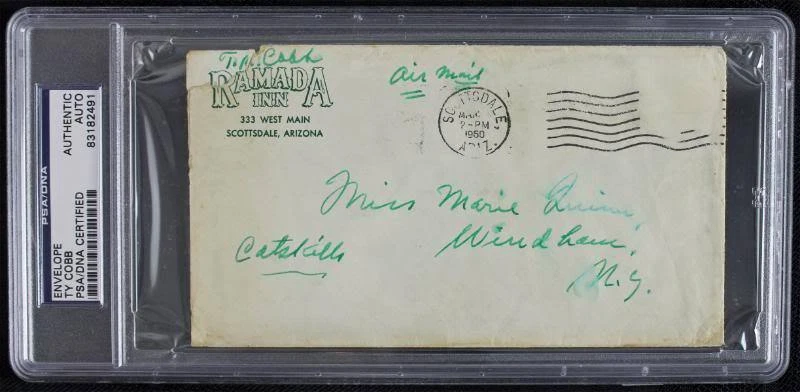 PSA/DNA
ENVELOPE
TY COBB
PSA/DNA CERTIFIED
AUTHENTIC
AUTO
83182491
T.R. Cobb
RAMADA
INN
333 WEST MAIN
SCOTTSDALE, ARIZONA
Air Mail
SCOTTSDALE,
MAR
2-PM
1960
ARIZ.
Miss Marie Quinn,
Catskills
Windham,
N.Y.